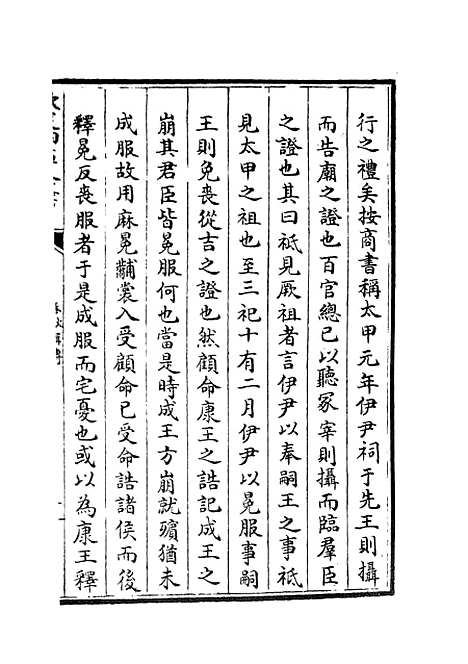 行之禮矣按商書稱太甲元年伊尹祠于先王則攝
而告廟之證也百官總已以聽冡宰則攝而臨羣臣
之證也其曰祗見厥祖者言伊尹以奉嗣王之事祗
見太甲之祖也至三祀十有二月伊尹以冕服事嗣
王則免喪從吉之證也然顧命康王之誥記成王之
崩其君臣皆冕服何也當是時成王方崩就殯猶未
成服故用麻冕黼裳入受顧命已受命誥諸侯而後
釋冕反喪服者于是成服而宅憂也或以為康王釋